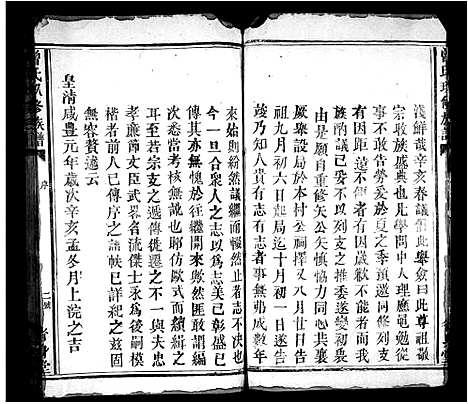 淺鮮哉辛亥春議倡此舉僉曰此尊祖敬
宗收族盛典也凡學問中人理應黽勉從
事不憚昔勞爰於夏之季頭邀同修支
有因距遠不偕者有因歲歉不能並舉者
鄉酌議已妥不以列支之推委遂變初襄
由是願自重修矢公矢慎協力同心共勷
厥舉設局於本村公祠擇又八月廿日開
祖九月初六日起局迄十月初一日遂告
竣乃知人貴有志者事竟成也無弗成數年
來始則紛然議繼而輟然止者志不決也
今一旦合衆人之志以為志美已彰盛已
傳其亦無愧於往繼開來歟然匪敢謂編
次悉當考核無訛也聊仿歐式而續緝之
耳至若宗支之遞傳徙遷之不一與夫忠
孝廉節文臣武畧名流傑士永為後嗣模
楷者前人已傳序之譜帙已詳紀之茲固
無容贅述云
皇清咸豐元年歲次辛亥孟冬月上浣之吉
曾氏
修族譜
序
二號